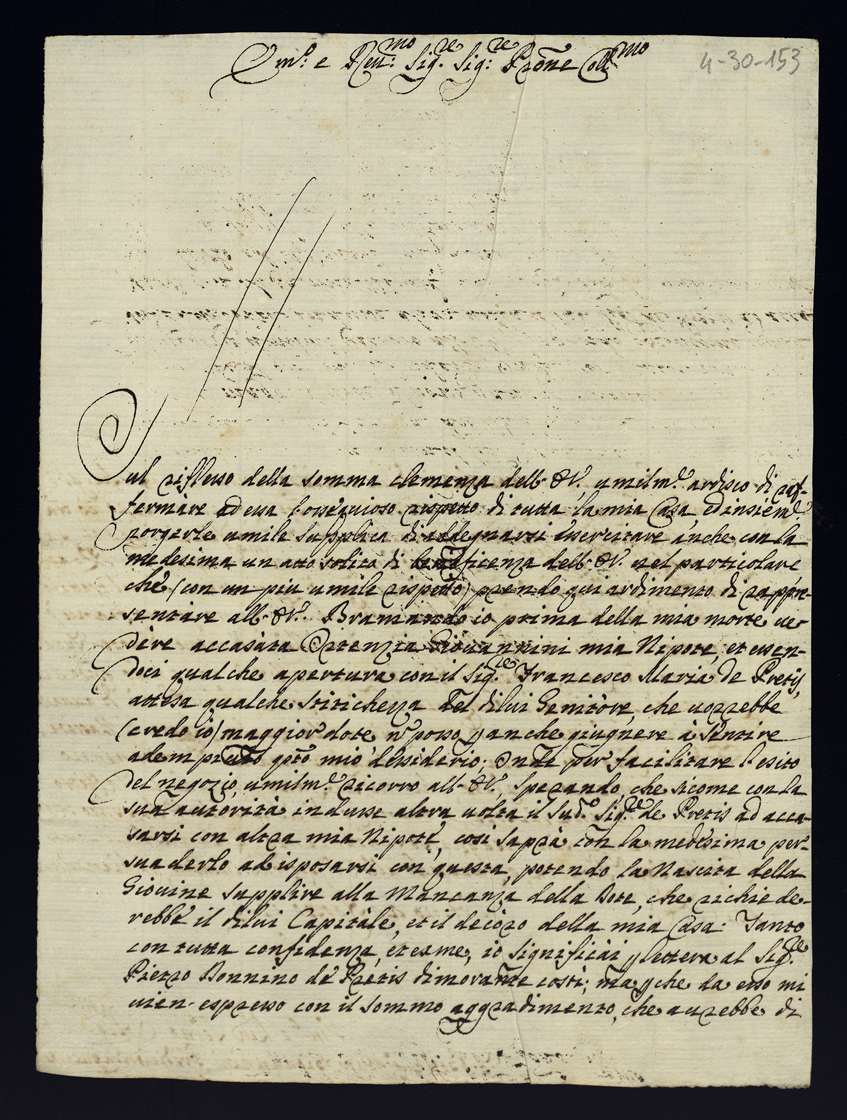 Em.º e Reu.mo Sig.re Sig.re Prõne Coll.mo
4-30-153
Sul riflesso della somma clemenza dell'E.V. umilm.e ardisco di raf-
fermare ad essa l'ossequioso rispetto di tutta la mia Casa, ed insiem.e
porgerle umile supplica di addegnarsi esercitare anche con la
medesima un atto solito di beneficenza dell'E.V. nel particolare
che (con un più umile rispetto) prendo qui ardimento di rappre-
sentare all'E.V. Bramando io prima della mia morte ve-
dere accasata Ortenzia Giovannini mia Nipote, et essen-
doci qualche apertura con il Sig.re Francesco Maria de Pretis,
attesa qualche stitichezza del di lui Genitore, che vorrebbe
(credo io) maggior dote, nõ posso p anche giugnere à sentire
adempiuto qsto mio desiderio; Onde per facilitare l'esito
del negozio, umilm.e ricorro all'E.V., sperando, che sicome con la
sua autorità indusse altra volta il sud.o Sig.re de Pretis ad acca-
sarsi con altra mia Nipote, così saprà con la medesima per-
suaderlo ad isposarsi con questa, potendo la Nascita della
Giovine supplire alla Mancanza della Dote, che richiede-
rebbe il di lui Capitale, et il decoro della mia Casa. Tanto
con tutta confidenza, et esme, io significai p lettera al Sig.re
Pietro Bonnino de Pretis dimorante costì; ma pche da esso mi
vien espresso con il sommo aggradimento, che avrebbe di